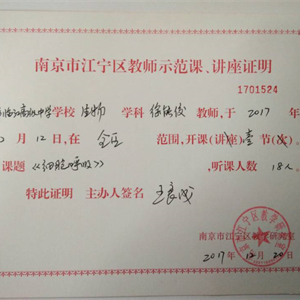 南京市江宁区教师示范课、讲座证明
1701524
高级中学学校 生物 学科 教师,于 2017 年
12 月 12 日,在 全区 范围,开课(讲座)壹 节(次)
课题 《细胞呼吸》,听课人数 18人。
特此证明 主办人签名
南京市江宁区教学研究室
2017年 12月 20日